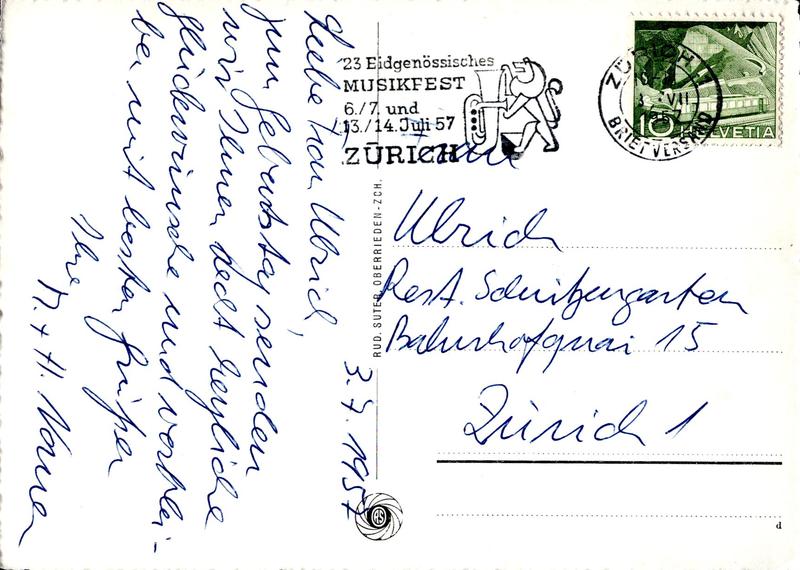 Liebe Frau Ulrich,
zum Geburtstag senden
wir Ihnen recht herzliche
Glückwünsche und verblei-
ben mit besten Grüßen
Ihre
M. + H.
3.7.1957
23 Eidgenössisches
MUSIKFEST
6./7. und
13./14. Juli 57
ZÜRICH
ZÜRICH
VII
BRIEFVERSAND
10 HELVETIA
RUD. SUTER, OBERRIEDEN-ZCH.
Frau
Ulrich
Rest. Schützengarten
Bahnhofquai 15
Zürich 1
d